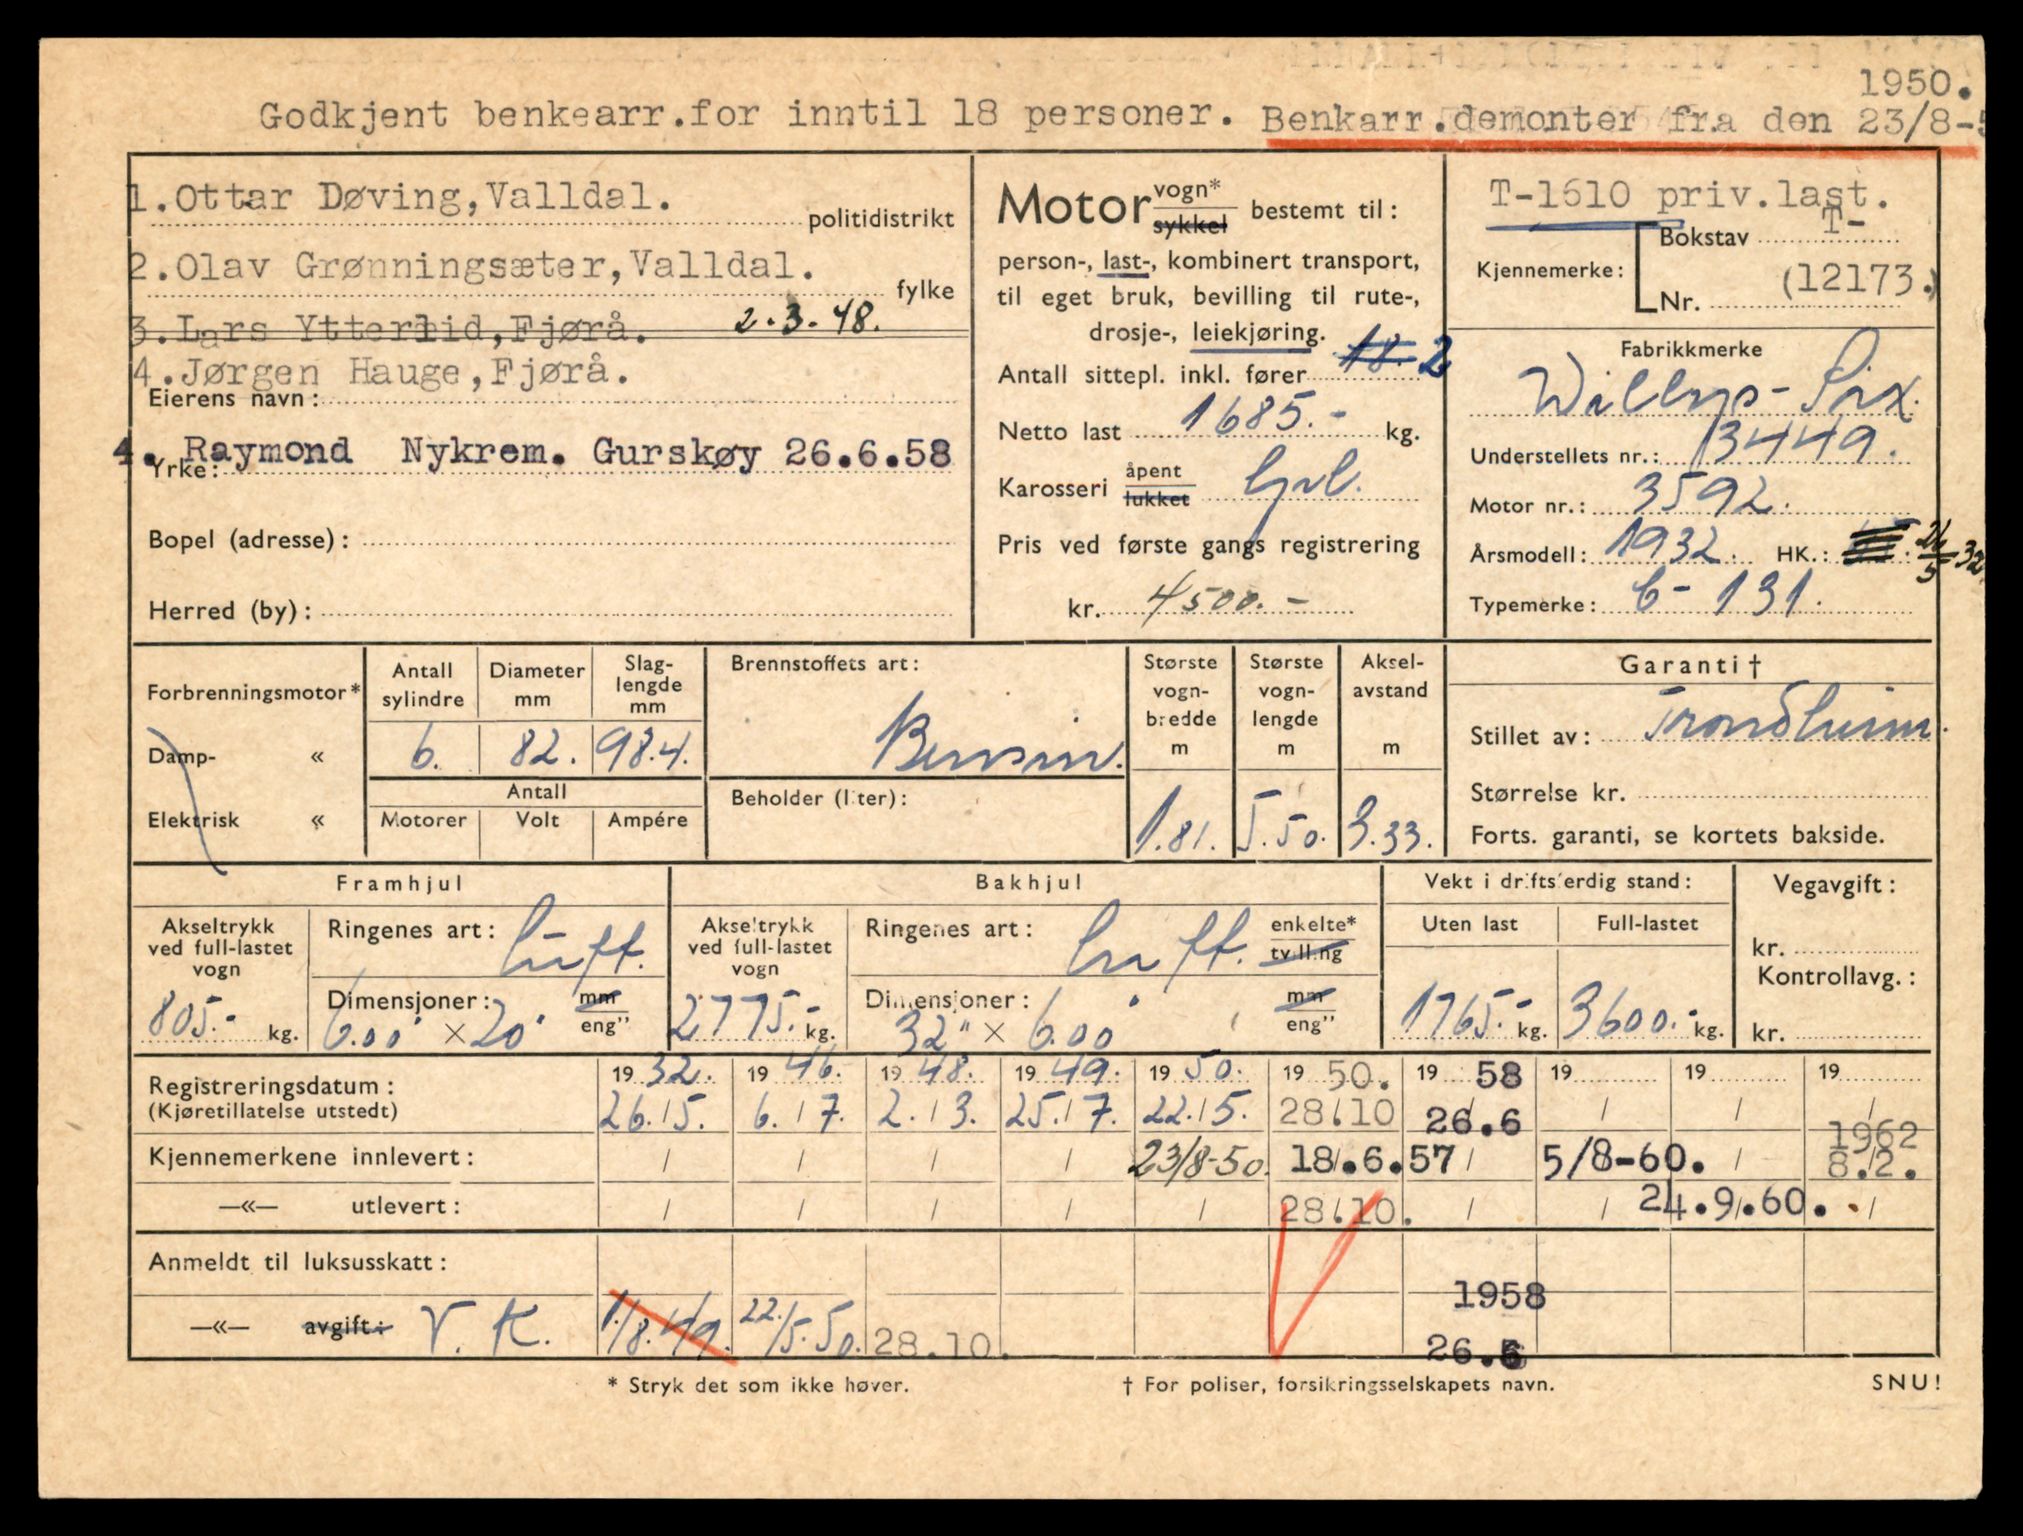 1950.
Godkjent benkearr.for inntil 18 personer. Benkarr.demonter fra den 23/8-5
1.Ottar Døving,Valldal.
politidistrikt
2.Olav Grønningsæter,Valldal.
fylke
3.Lars Ytterlid,Fjørå. 2.3.48.
4.Jørgen Hauge,Fjørå.
Eierens navn:
4. Raymond Nykrem. Gurskøy 26.6.58
Yrke:
Bopel (adresse):
Herred (by):
Motor vogn* sykkel bestemt til:
person-, last-, kombinert transport,
til eget bruk, bevilling til rute-,
drosje-, leiekjøring.
Antall sittepl. inkl. fører 18. 2
Netto last 1685.- kg.
Karosseri åpent lukket
Pris ved første gangs registrering
kr. 4500.-
T-1610 priv.last.
Kjennemerke: Bokstav T-
Nr. (12173.)
Fabrikkmerke
Willys-Six.
Understellets nr.: 13449.
Motor nr.: 3592.
Årsmodell: 1932. HK.: 26/5-32
Typemerke: C-131.
Forbrenningsmotor*
Damp- «
Elektrisk «
Antall sylindre 6.
Diameter mm 82.
Slag-lengde mm 98.4.
Antall
Motorer Volt Ampére
Brennstoffets art:
Bensin.
Beholder (liter):
Største vogn-bredde m 1.81.
Største vogn-lengde m 5.50.
Aksel-avstand m 3.33.
Garanti†
Stillet av: Trondheim.
Størrelse kr.
Forts. garanti, se kortets bakside.
Framhjul
Akseltrykk ved full-lastet vogn
805.- kg.
Ringenes art: Luft.
Dimensjoner: mm eng"
6.00 × 20
Bakhjul
Akseltrykk ved full-lastet vogn
2775.- kg.
Ringenes art: Luft. enkelte* tvilling
Dimensjoner: mm eng"
32" × 6.00
Vekt i driftsferdig stand:
Uten last Full-lastet
1765.- kg. 3600.- kg.
Vegavgift:
kr.
Kontrollavg.:
kr.
Registreringsdatum: 19 32. 19 46. 19 48. 19 49. 19 50. 19 50. 19 58 19 19 19
(Kjøretillatelse utstedt) 26./5. 6./7. 2./3. 25./7. 22./5. 28.10 26.6
1962
Kjennemerkene innlevert: 23/8-50. 18.6.57 5/8-60. 8.2.
—«— utlevert: 28.10. 24.9.60.
Anmeldt til luksusskatt:
1958
—«— avgift: V. K. 1./8.49. 22./5.50. 28.10. 26.6
* Stryk det som ikke høver.
† For poliser, forsikringsselskapets navn.
SNU!